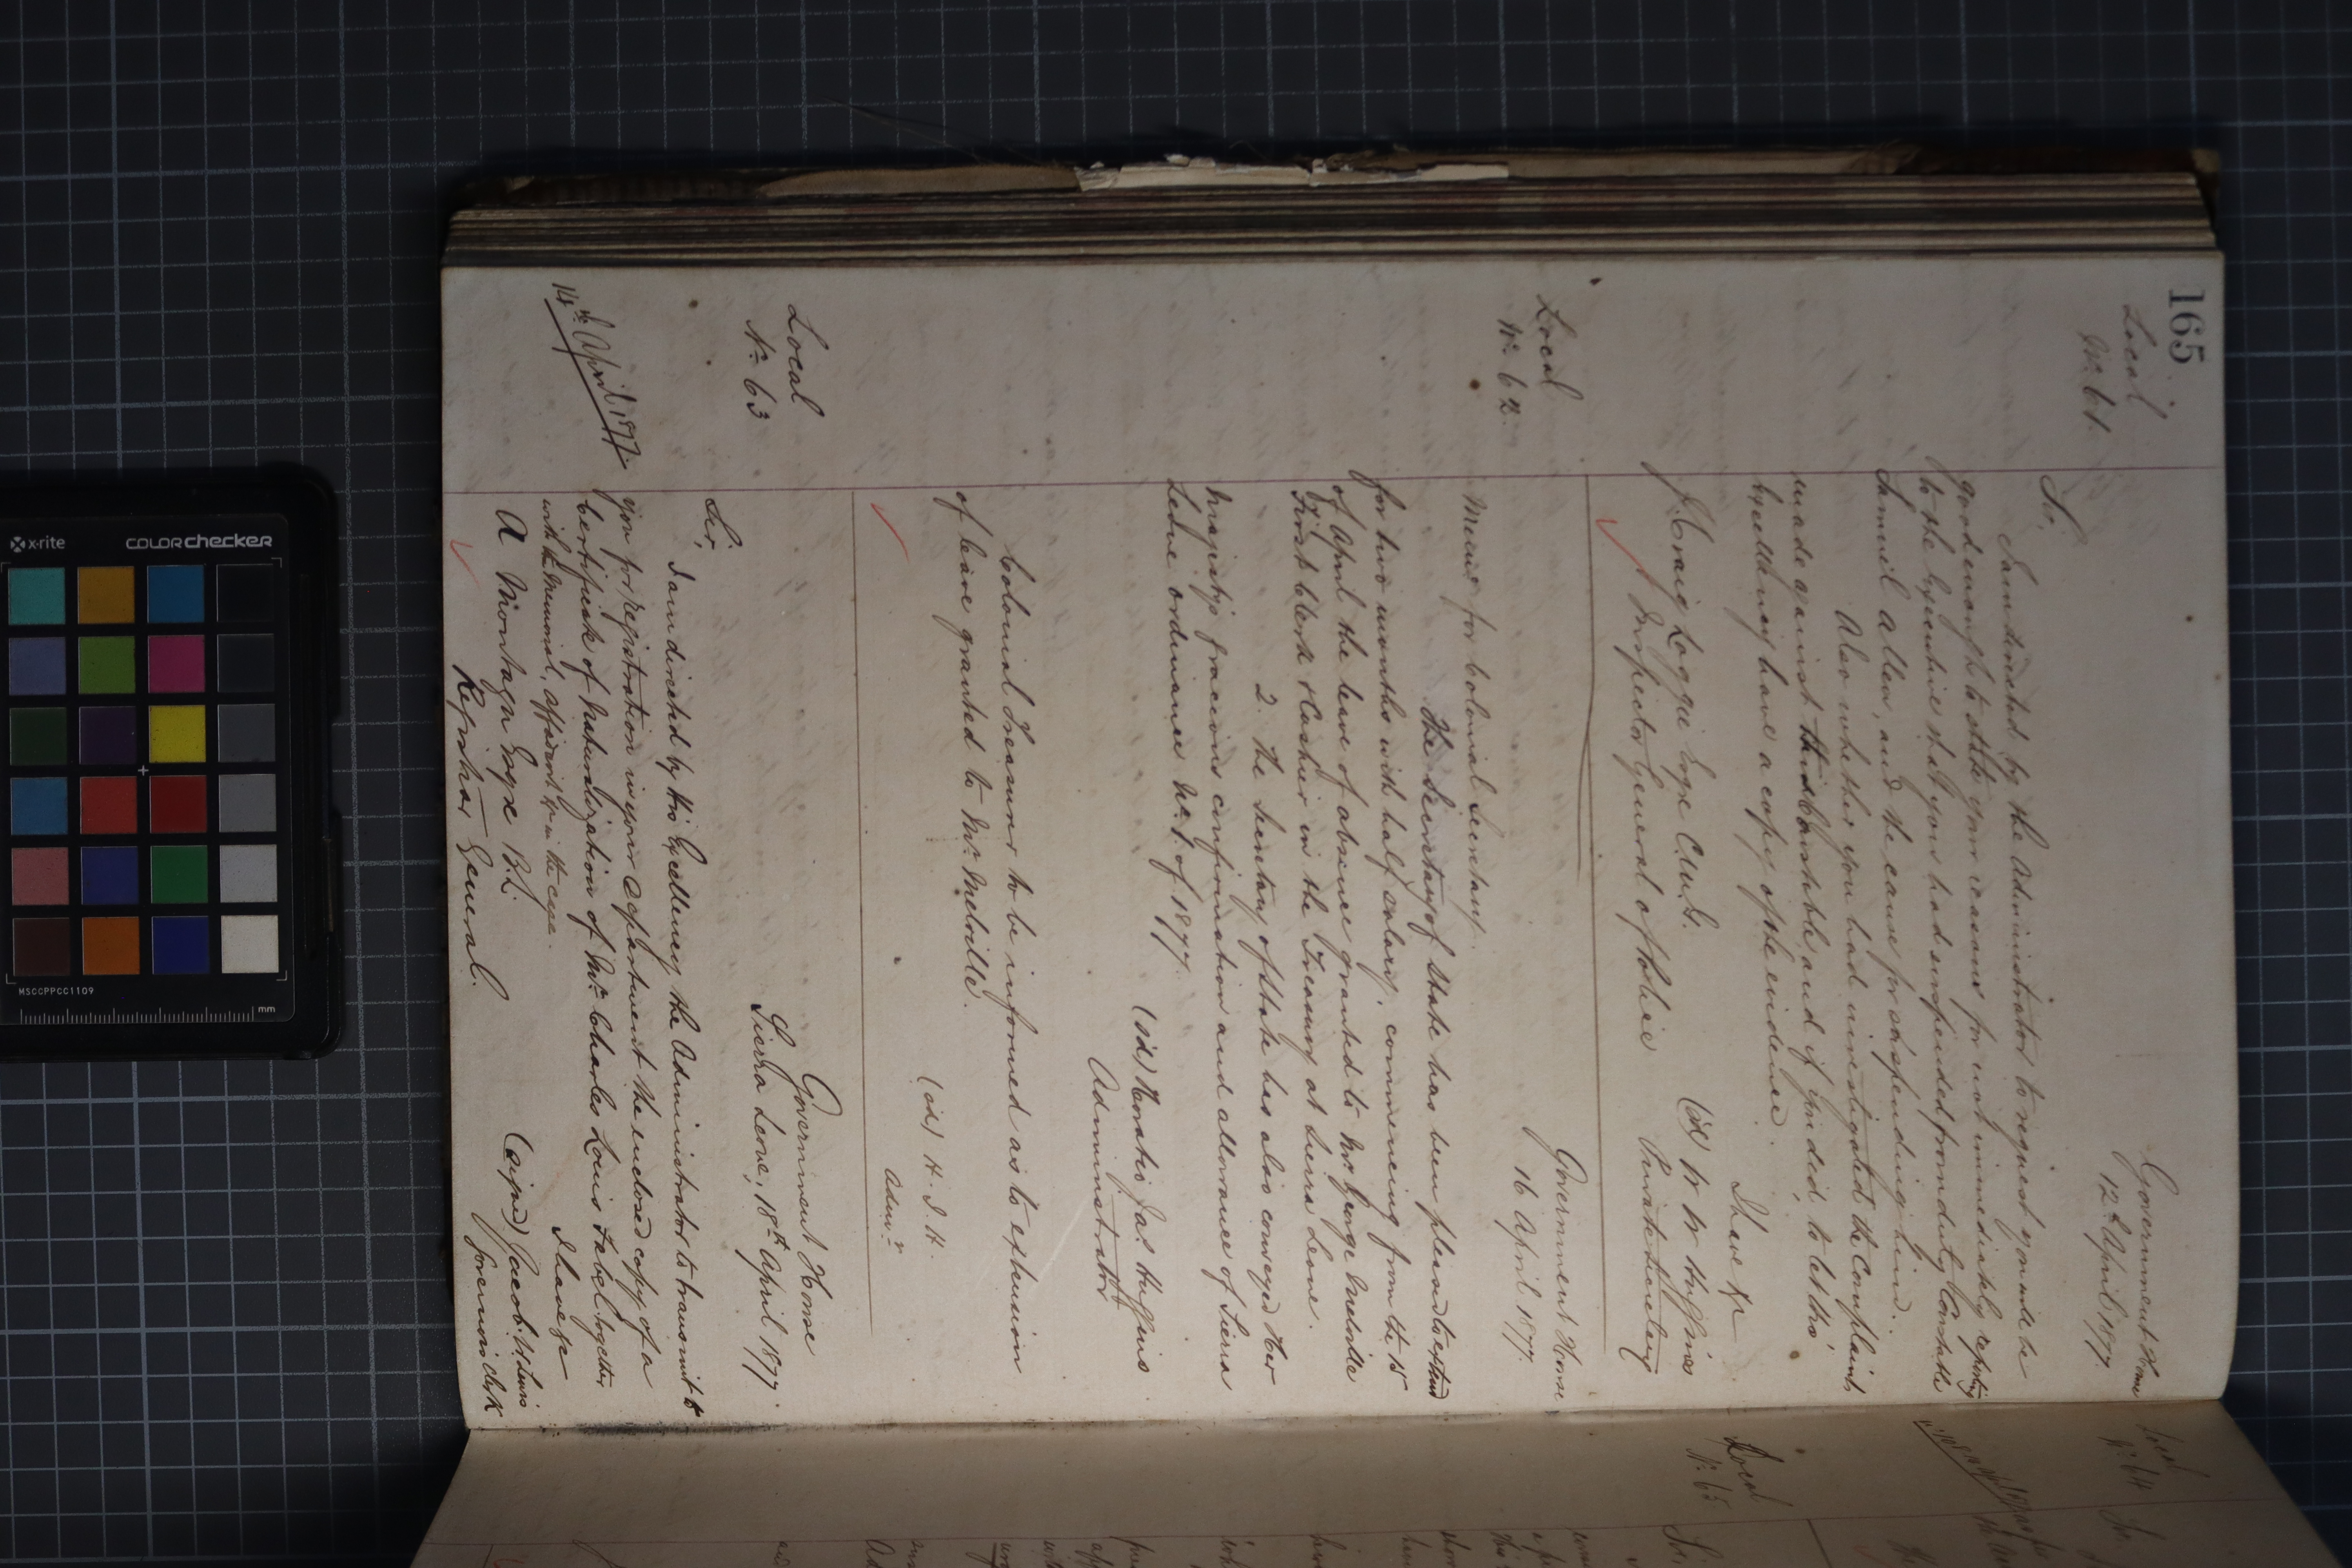 165
Local
No. 61
Government House
12th April 1877
Sir,
I am directed by the Administrator to request you will be
good enough to state your reasons for not immediately reporting
to the Executive that you had suspended from duty Constable
Samuel Allen, and the cause for suspending him.
Also whether you had investigated the Complaints
made against this Constable, and if you did, to let His
Excellency have a copy of the evidence.
I have &c
(sd) W W Huggins
Private Secretary
J. Craig Loggie Esqre C.M.G.
Inspector General of Police
Local
No. 62
Government House
16 April 1877.
Memo for Colonial Secretary.
The Secretary of State has been pleased to extend
for two months with half salary, commencing from the 15
of April the leave of absence granted to Mr. George Melville
First Clerk & Cashier in the Treasury at Sierra Leone.
2. The Secretary of State has also conveyed Her
Majesty's gracious confirmation and allowance of Sierra
Leone Ordinance No. 1. of 1877.
(sd) Horatio Jas. Huggins
Administrator
Colonial Treasurer to be informed as to extension
of leave granted to Mr. Melville.
(sd) H. J. H.
Admr.
Local
No. 63
Government House
Sierra Leone, 18th April 1877.
Sir,
I am directed by His Excellency the Administrator to transmit to
14th April 1877
you for registration in your Department the enclosed copy of a
Certificate of Naturalization of Mr. Charles Louis Sabel. together
with the Memorial, affidavit &c in the case.
I have &c
(signed) Jacob. W. Lewis
Foreman Clerk
A Montagu Esqre B.L.
Registrar General.
Local
No. 64
Sir,
Local
No. 65
Sir,
x-rite
colorchecker
MSCCPPCC1109
mm